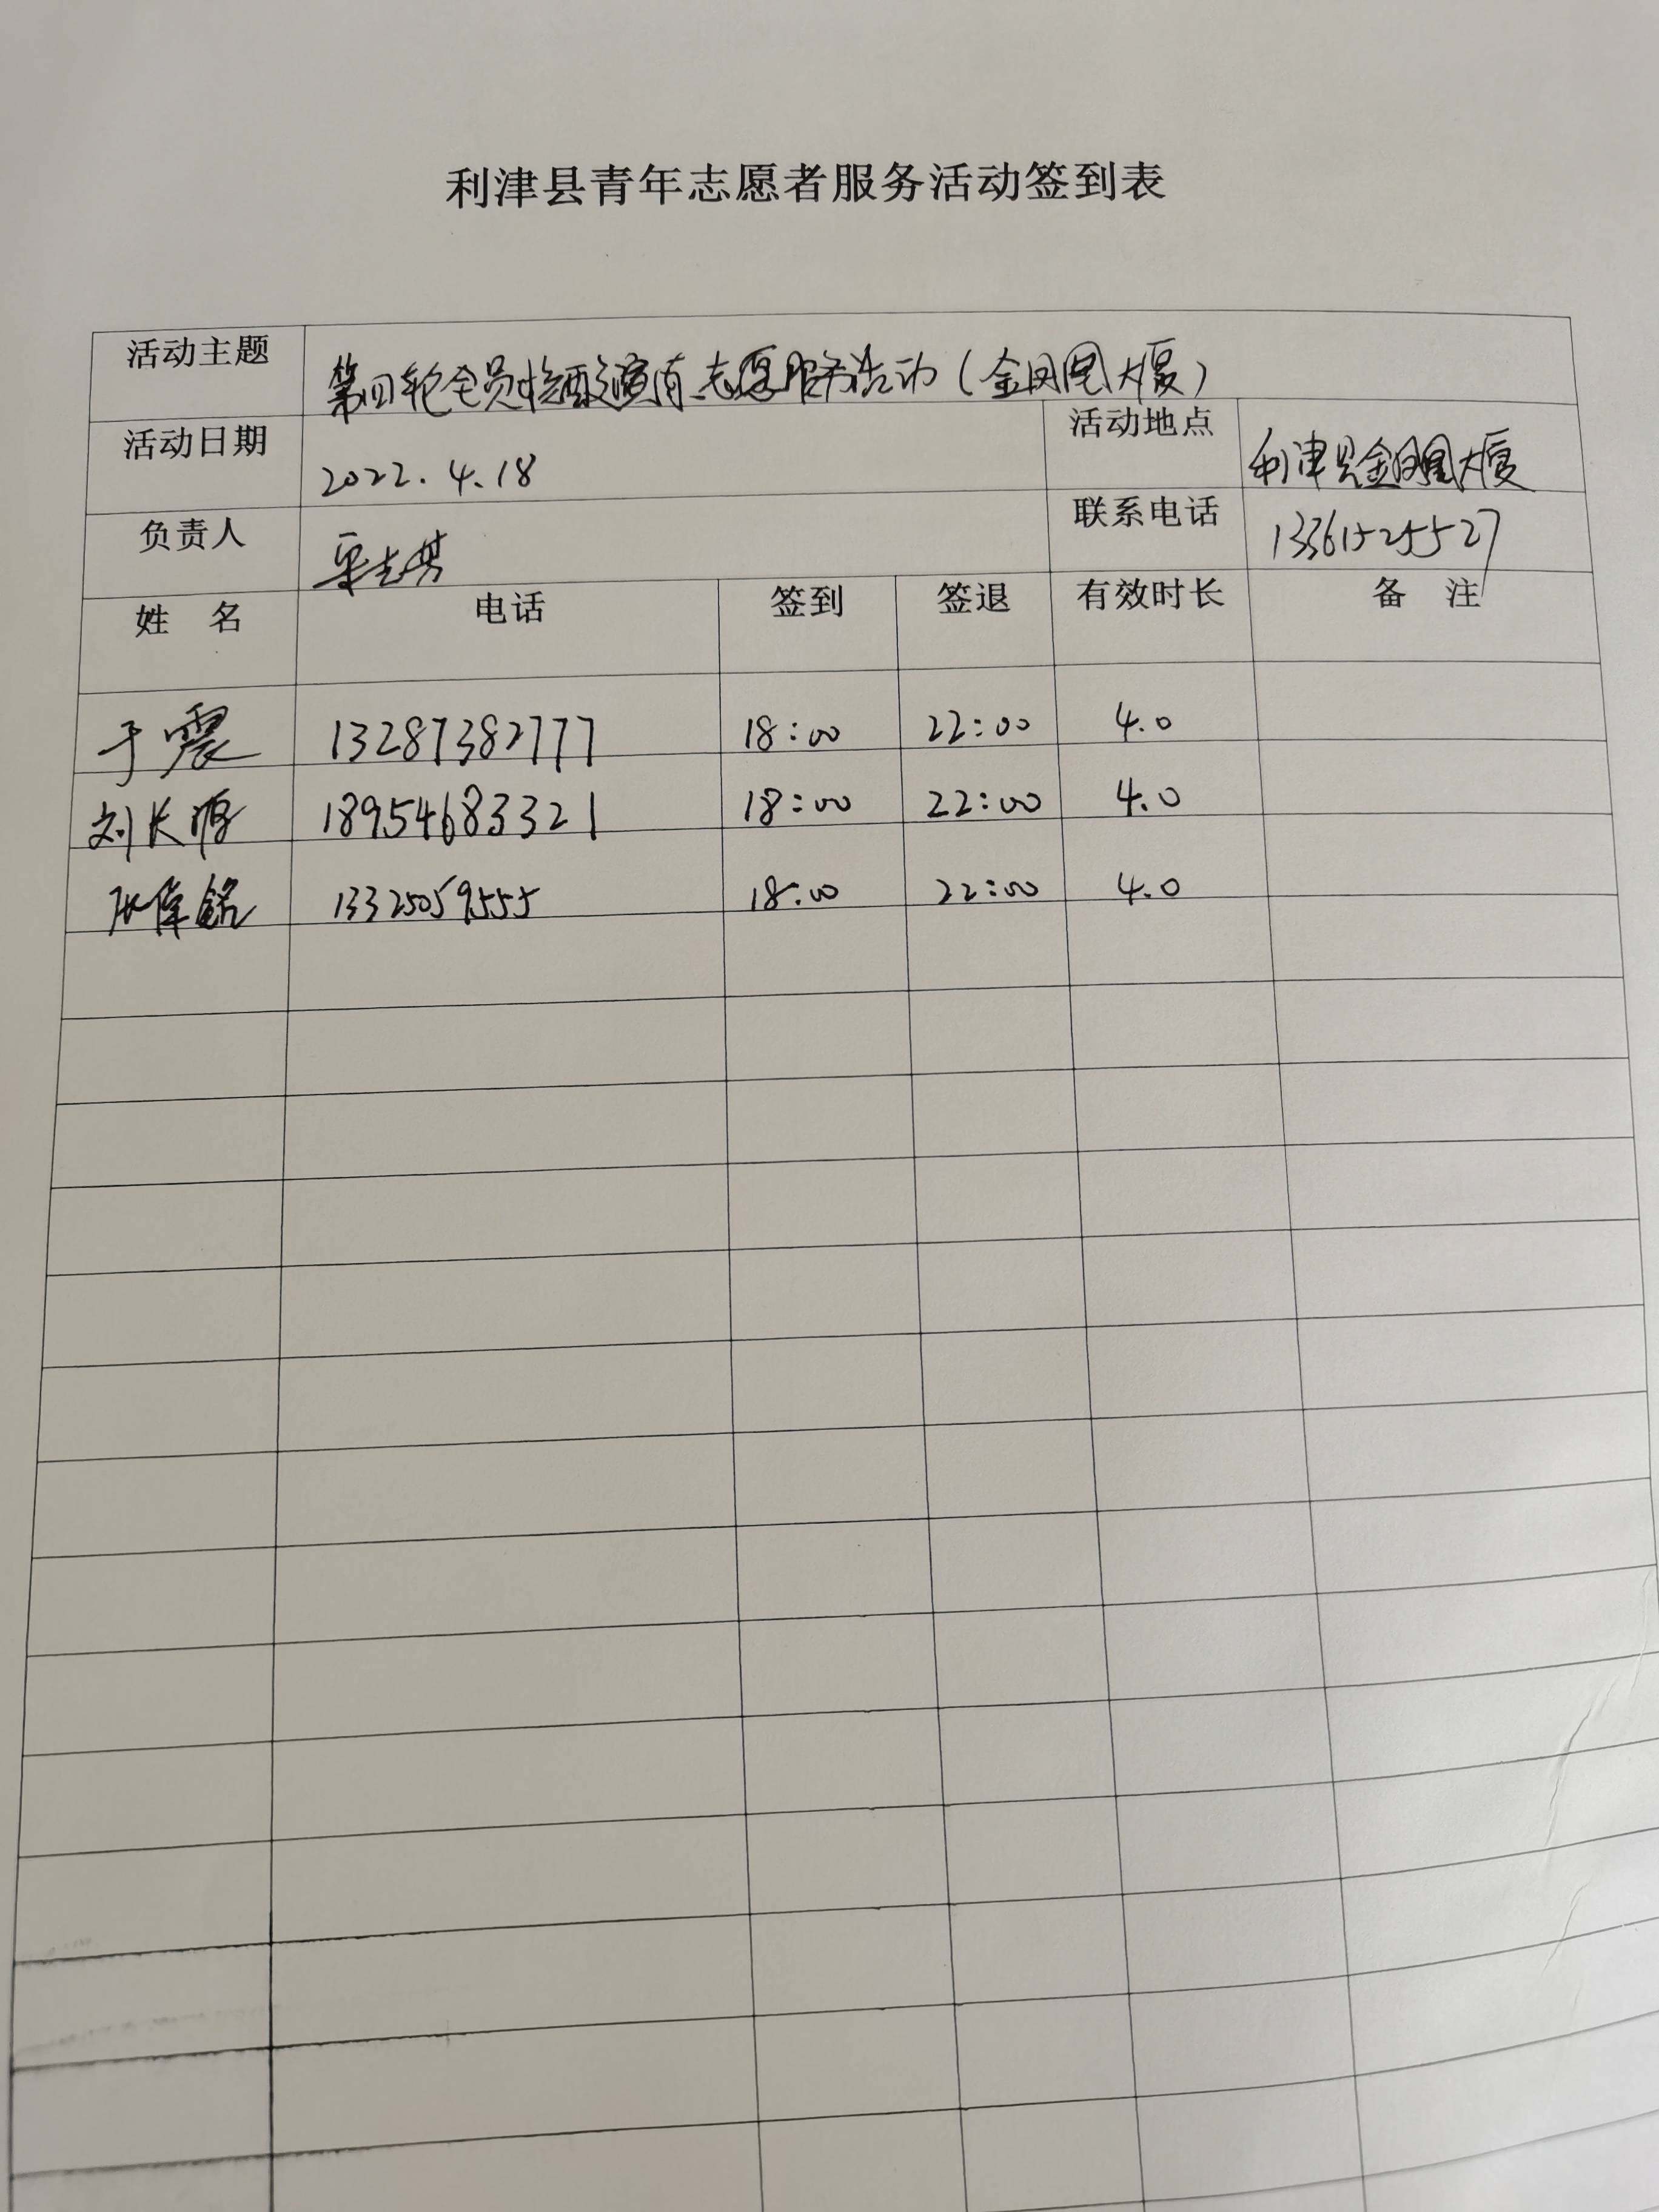 利津县青年志愿者服务活动签到表
活动主题 第四轮全员核酸 志愿服务活动（金凤凰大厦）
活动日期 2022.4.18 活动地点 利津县金凤凰大厦
负责人 联系电话 13361525527
姓 名 电话 签到 签退 有效时长 备 注
于震 13287382777 18:00 22:00 4.0
刘长 18954683321 18:00 22:00 4.0
张 铭 13325059555 18:00 22:00 4.0